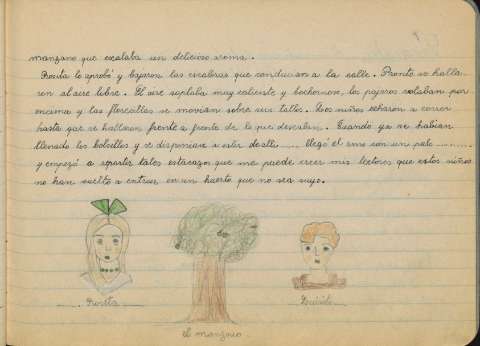 manzano que exalaba un delicioso aroma.
Rosita lo aprobó y bajaron las escaleras que conducian a la calle. Pronto se halla-
ron al aire libre. El aire soplaba muy caliente y bochornoso, los pajaros volaban por
encima y las florecillas se movian sobre sus tallos. Los niños echaron a correr
hasta que se hallaron frente a frente de lo que deseaban. Cuando ya se habian
llenado los bolsillos y se disponian a salir de alli...... llegó el amo con un palo
y empezó a repartir tales estacazos que me puede creer mis lectores que estos niños
no han vuelto a entrar en un huerto que no sea suyo.
Rosita
el manzano